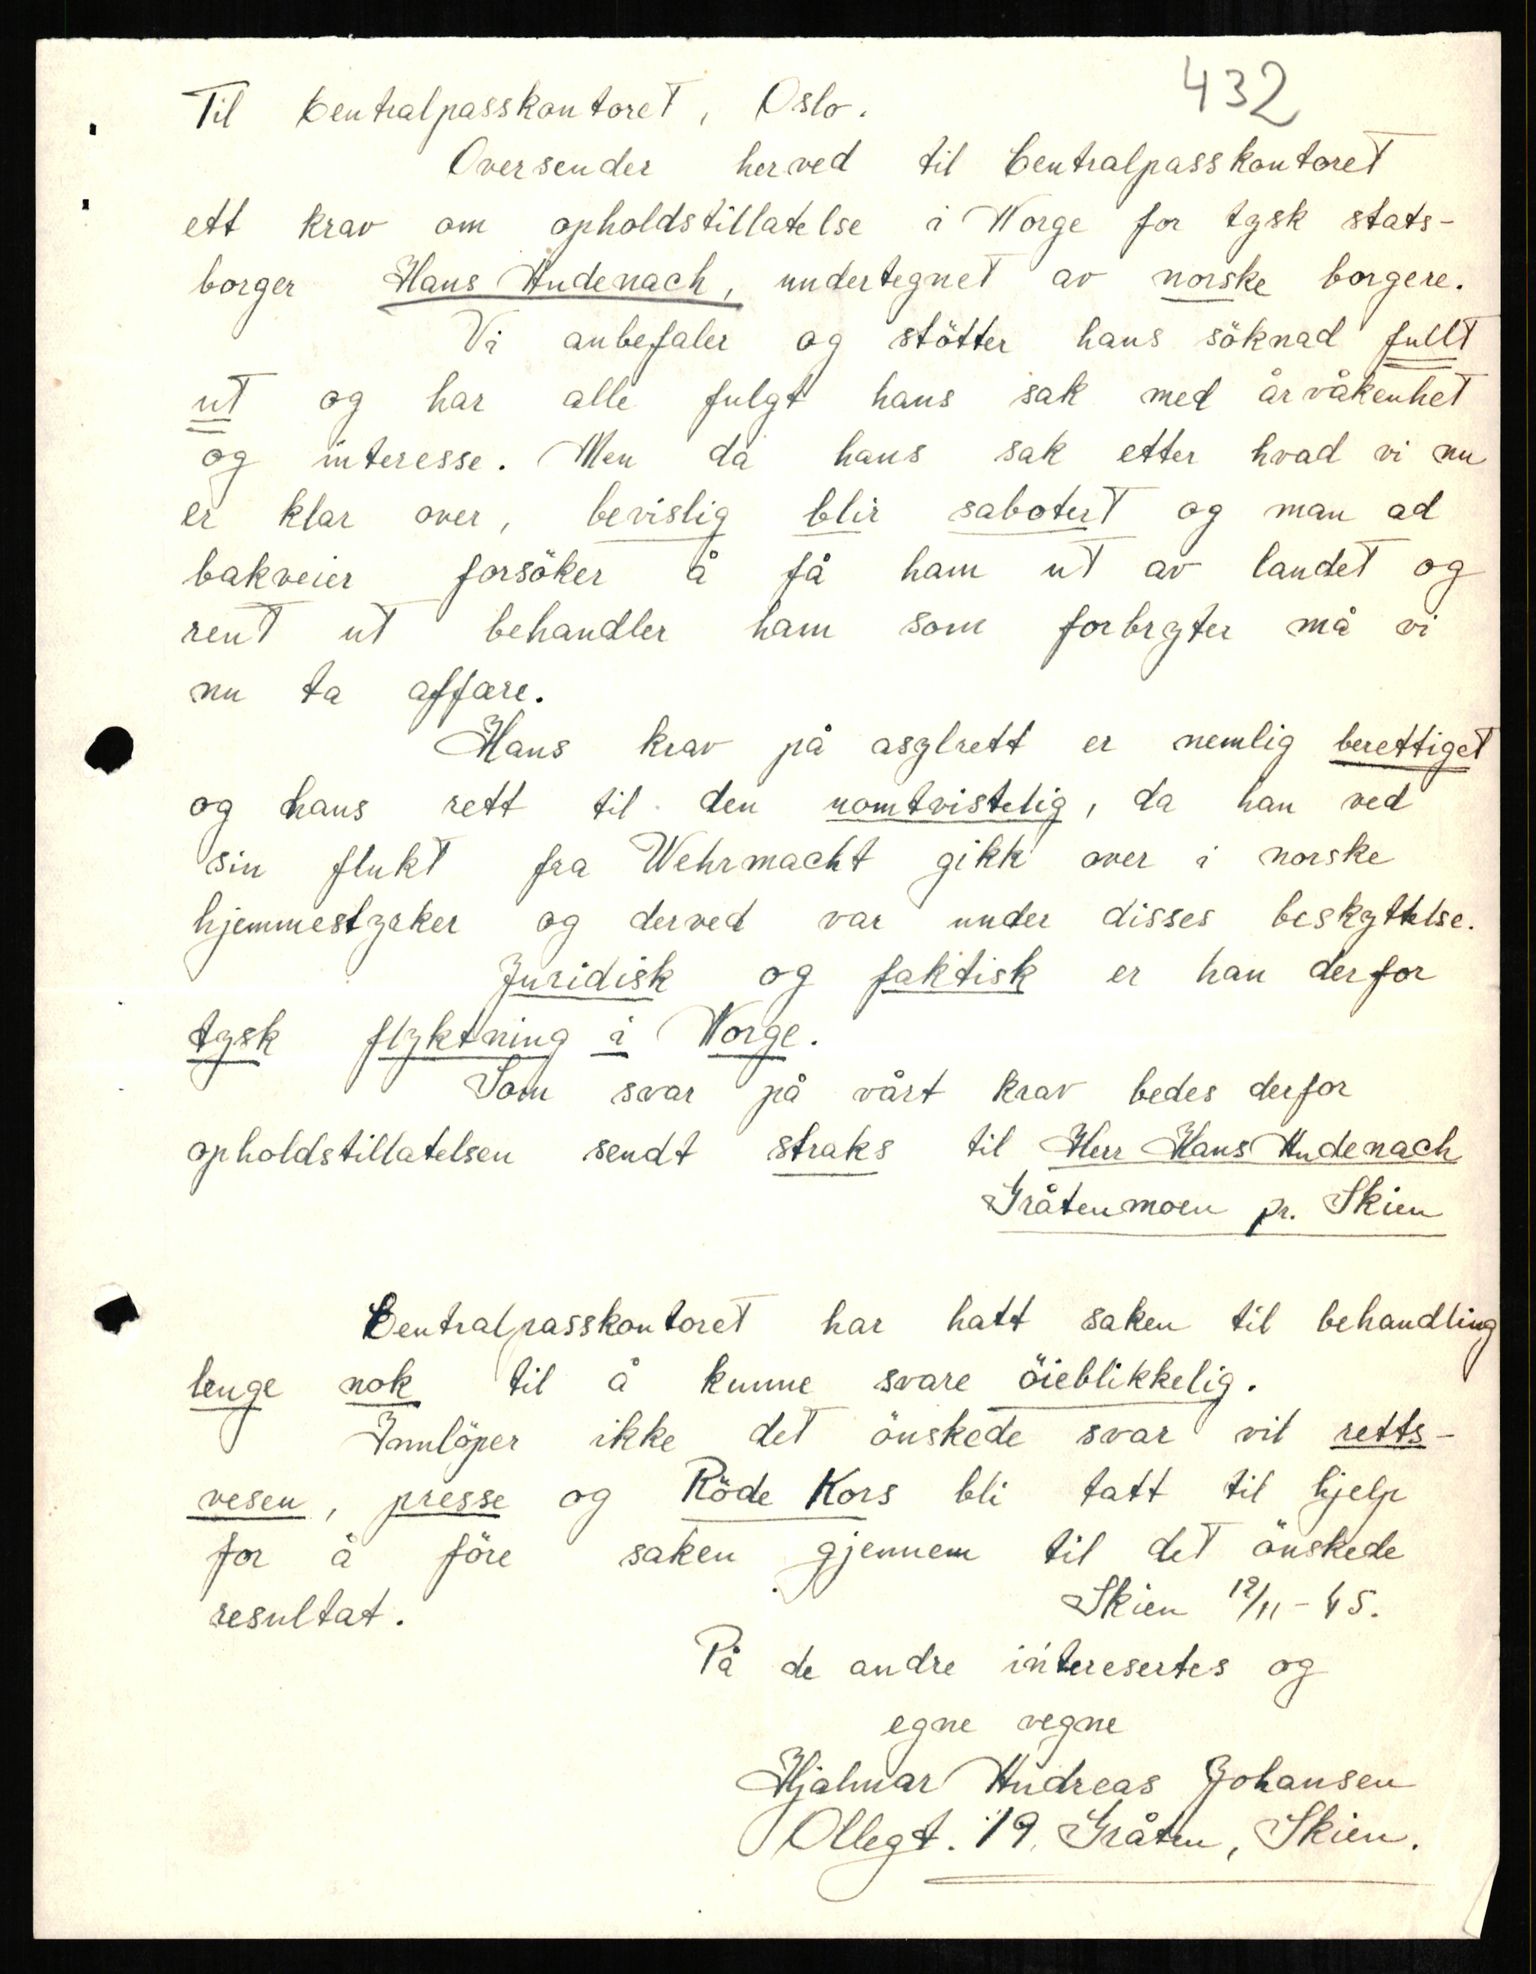 432
Til Centralpasskontoret, Oslo.
Oversender herved til Centralpasskontoret
ett krav om opholdstillatelse i Norge for tysk stats-
borger Hans Andenach, undertegnet av norske borgere.
Vi anbefaler og stötter hans söknad fullt
ut og har alle fulgt hans sak med årvåkenhet
og interesse. Men da hans sak etter hvad vi nu
er klar over, bevislig blir sabotert og man ad
bakveier forsöker å få ham ut av landet og
rent ut behandler ham som forbryter må vi
nu ta affære.
Hans krav på asylrett er nemlig berettiget
og hans rett til den uomtvistelig, da han ved
sin flukt fra Wehrmacht gikk over i norske
hjemmestyrker og derved var under disses beskyttelse.
Juridisk og faktisk er han derfor
tysk flyktning i Norge.
Som svar på vårt krav bedes derfor
opholdstillatelsen sendt straks til Herr Hans Andenach
Gråtenmoen pr. Skien
Centralpasskontoret har hatt saken til behandling
lenge nok til å kunne svare öieblikkelig.
Innlöper ikke det önskede svar vil retts-
vesen, presse og Röde Kors bli tatt til hjelp
for å före saken gjennem til det önskede
resultat. Skien 12/11-45.
På de andre interesertes og
egne vegne
Hjalmar Andreas Johansen
Ollegt. 19, Gråten, Skien.